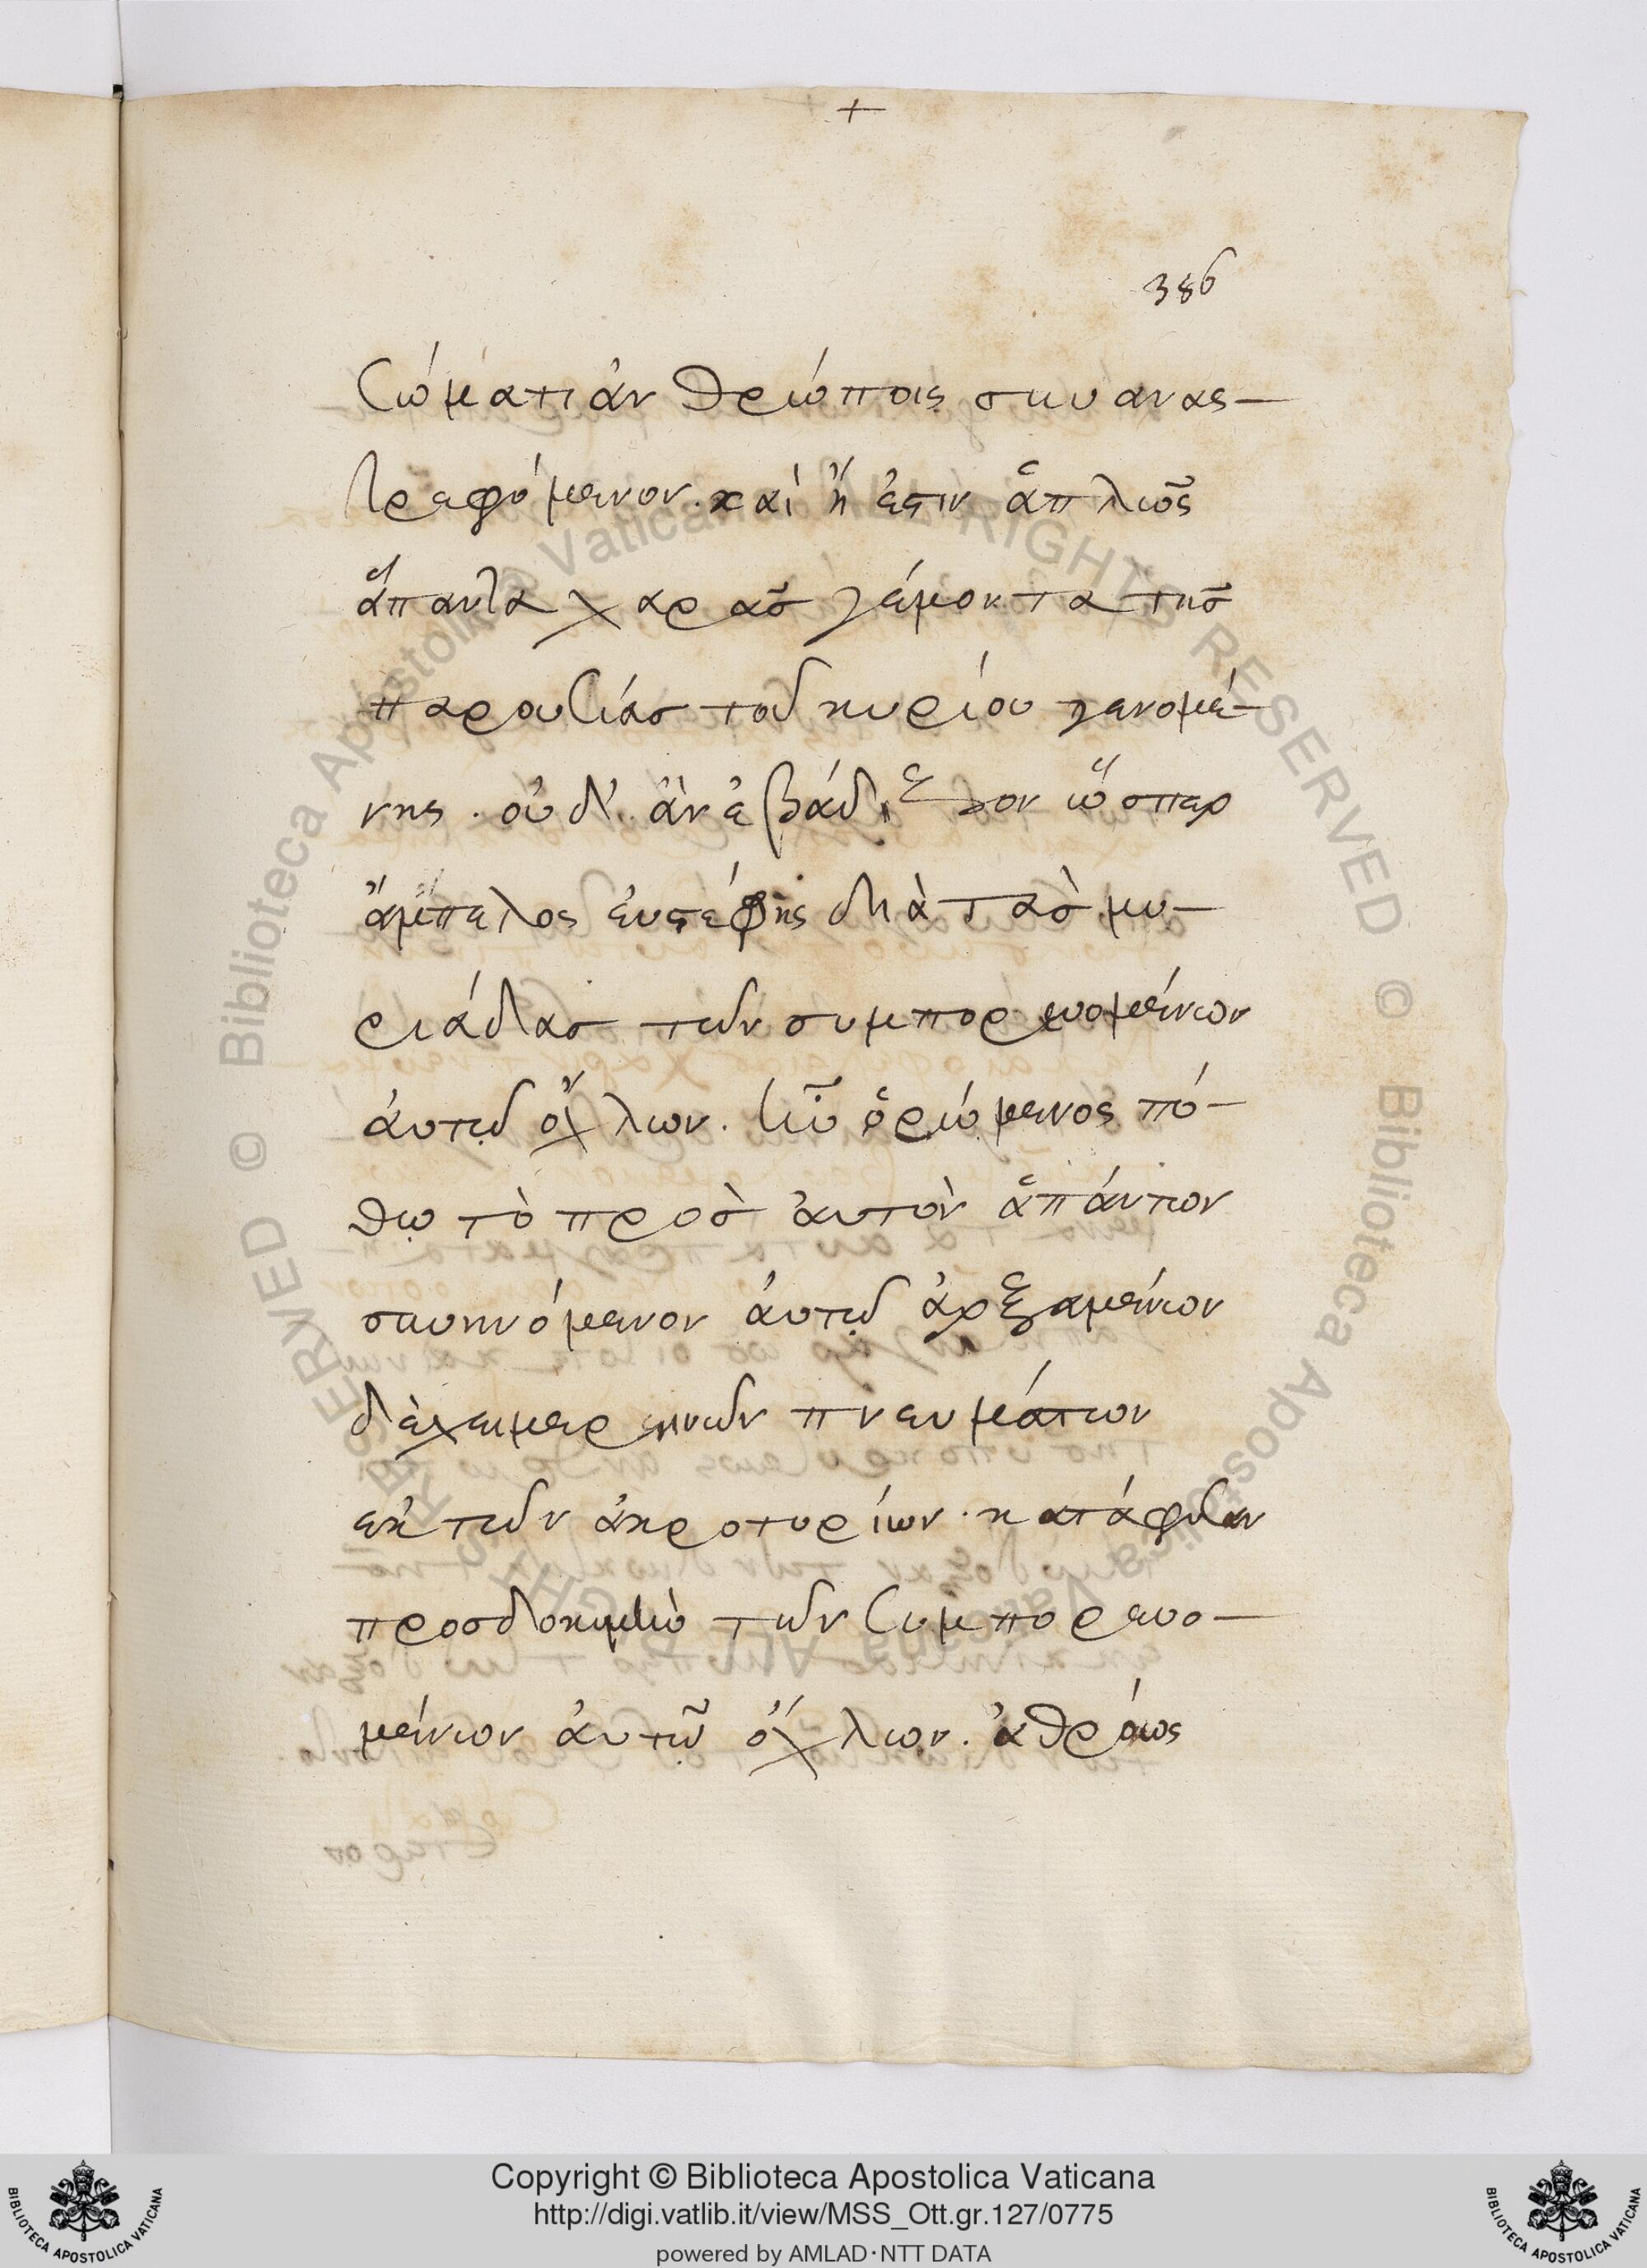 +
386
σώματι ἀνθρώποις σκυανας-
τρεφόμενον. καὶ ἤ ἐστιν ἁπλῶς
ἅπαντα χαρᾶσ γέμοντα τησ
παρουσίασ τοῦ κυρίου γενομέ-
νης. οὐδ' ἂν ἐβάδιζον ὥσπερ
ἄμπελος ἐυστέφης διὰ τασ μυ-
ριάδασ τῶν συμπορευομένων
ἀυτῷ ὄχλων. ἦν ὁρώμενος πό-
θῳ τὸ πρὸσ ἀυτὸν ἁπάντων
σκυηνόμενον ἀυτῷ ἀρξαμένων
δὲ χειμερεινῶν πνευμάτων
ἐκ τῶν ἀκροτορίων. κατάφυσαν
τῶν συμπορευο-
μένων ἀυτῷ ὄχλων. ἀθρόως
Copyright © Biblioteca Apostolica Vaticana
http://digi.vatlib.it/view/MSS_Ott.gr.127/0775
powered by AMLAD·NTT DATA
BIBLIOTECA APOSTOLICA VATICANA
BIBLIOTECA APOSTOLICA VATICANA
© Biblioteca Apostolica Vaticana ALL RIGHTS RESERVED
© Biblioteca Apostolica Vaticana ALL RIGHTS RESERVED